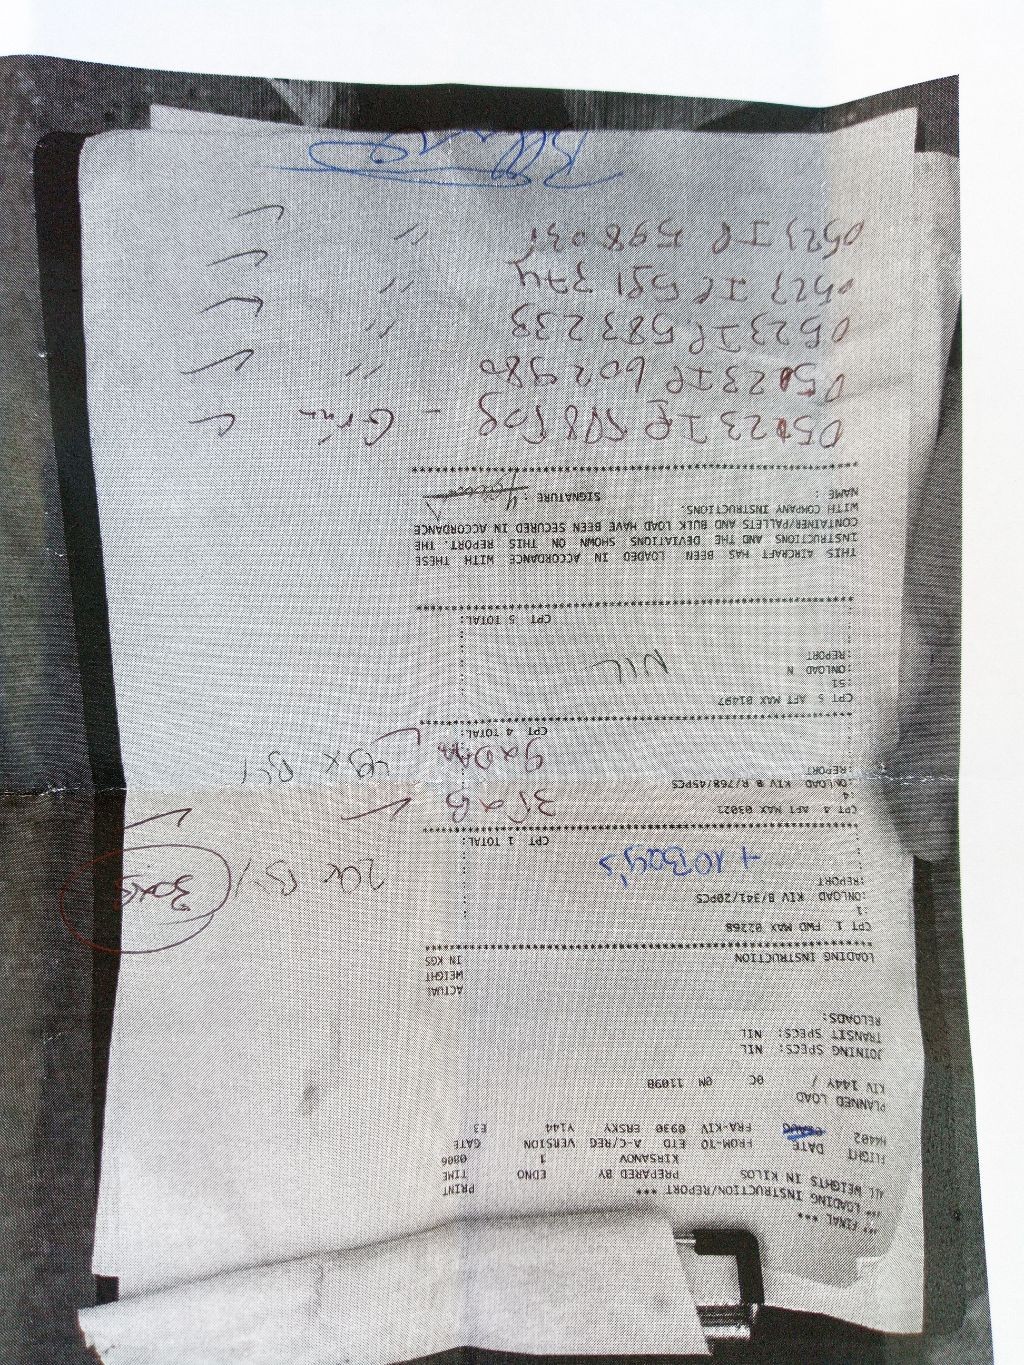 *** FINAL ***
*** LOADING INSTRUCTION/REPORT *** PRINT
ALL WEIGHTS IN KILOS PREPARED BY EDNO TIME
KIRSANOV 1 0806
FLIGHT DATE FROM-TO ETD A-C/REG VERSION GATE
H4402 FRA-KIV 0930 ERSKY Y144 E3
PLANNED LOAD
KIV 144Y / 0C 0M 1109B
JOINING SPECS: NIL
TRANSIT SPECS: NIL
RELOADS:
ACTUAL
WEIGHT
LOADING INSTRUCTION IN KGS
************************************************
CPT 1 FWD MAX 02268
:1
:ONLOAD KIV B/341/20PCS
:REPORT
+10 Bag's
20x BY
30xB
CPT 1 TOTAL:
************************************************
CPT 4 AFT MAX 03021
:4
:ONLOAD KIV B R/768/45PCS
:REPORT
35xB
BY
CPT 4 TOTAL:
************************************************
CPT 5 AFT MAX 01497
:51
:ONLOAD N
:REPORT
NIL
CPT 5 TOTAL:
************************************************
THIS AIRCRAFT HAS BEEN LOADED IN ACCORDANCE WITH THESE
INSTRUCTIONS AND THE DEVIATIONS SHOWN ON THIS REPORT. THE
CONTAINER/PALLETS AND BULK LOAD HAVE BEEN SECURED IN ACCORDANCE
WITH COMPANY INSTRUCTIONS.
NAME : SIGNATURE :
************************************************
0523 IL 602980 "
0523 IL 583233 "
0523 IL 581374 "
0523 IL 598031 "